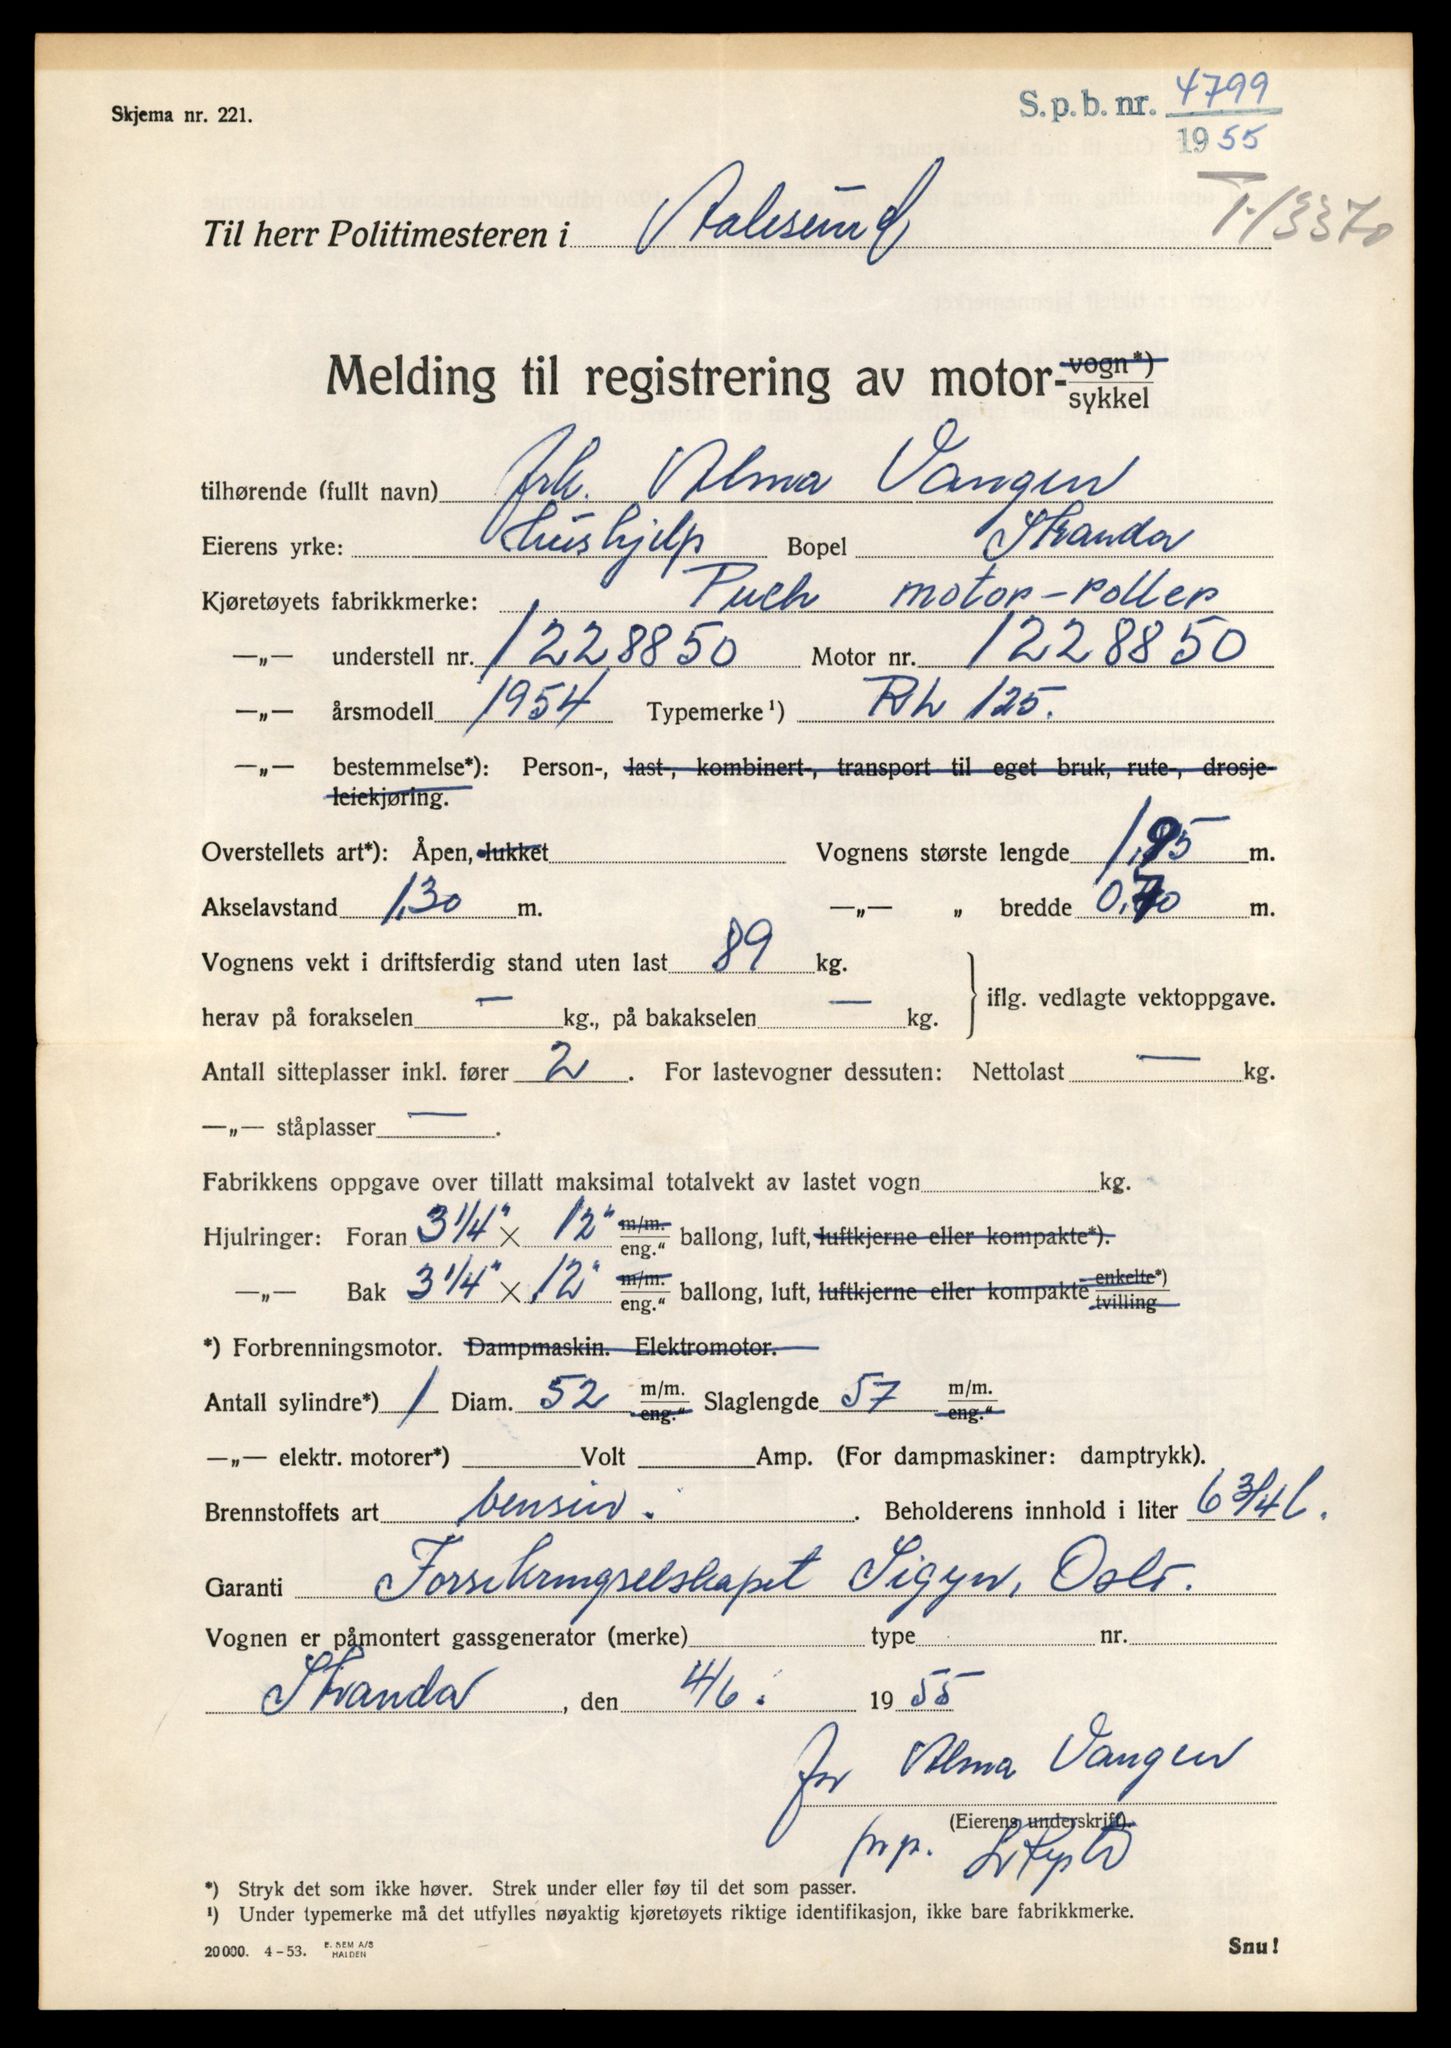 Skjema nr. 221.
S. p. b. nr. 4799
1955
T-13370
Til herr Politimesteren i Aalesund
Melding til registrering av motor-vogn*)
sykkel
tilhørende (fullt navn) Frk. Alma Vangen
Eierens yrke: Hushjelp Bopel Stranda
Kjøretøyets fabrikkmerke: Puch motor-roller
—„— understell nr. 1228850 Motor nr. 1228850
—„— årsmodell 1954 Typemerke¹) RL 125.
—„— bestemmelse*): Person-, last-, kombinert-, transport til eget bruk, rute-, drosje-
leiekjøring.
Overstellets art*): Åpen, lukket Vognens største lengde 1,95 m.
Akselavstand 1,30 m. —„— „ bredde 0,70 m.
Vognens vekt i driftsferdig stand uten last 89 kg.
herav på forakselen — kg., på bakakselen — kg. iflg. vedlagte vektoppgave.
Antall sitteplasser inkl. fører 2. For lastevogner dessuten: Nettolast — kg.
—„— ståplasser — .
Fabrikkens oppgave over tillatt maksimal totalvekt av lastet vogn kg.
Hjulringer: Foran 3 1/4" × 12" m/m. eng." ballong, luft, luftkjerne eller kompakte*).
—„— Bak 3 1/4" × 12" m/m. eng." ballong, luft, luftkjerne eller kompakte enkelte*) tvilling
*) Forbrenningsmotor. Dampmaskin. Elektromotor.
Antall sylindre*) 1 Diam. 52 m/m. eng." Slaglengde 57 m/m. eng."
—„— elektr. motorer*) Volt Amp. (For dampmaskiner: damptrykk).
Brennstoffets art bensin. . Beholderens innhold i liter 6 3/4 l.
Garanti Forsikringselskapet Sigyn, Oslo.
Vognen er påmontert gassgenerator (merke) type nr.
Stranda, den 4/6. 1955
for Alma Vangen
(Eierens underskrift).
pr.p.
*) Stryk det som ikke høver. Strek under eller føy til det som passer.
¹) Under typemerke må det utfylles nøyaktig kjøretøyets riktige identifikasjon, ikke bare fabrikkmerke.
20 000. 4-53. E. SEM A/S HALDEN
Snu!